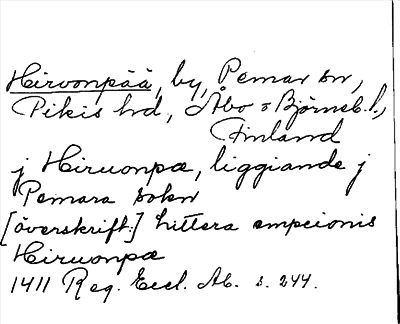 Hirvonpää, by, Pemar sn,
Pikis hd, Åbo o Björneb. l.,
Finland
j Hiruonpæ, liggiande j
Pemara sokn
[överskrift:] littera empcionis
Hiruonpæ
1411 Reg. Eccl. Ab. s. 244.